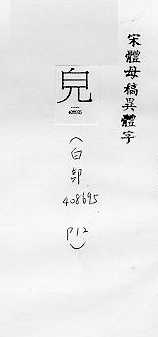 宋體母稿異體字
皃
408695
(白部
408695
P12)